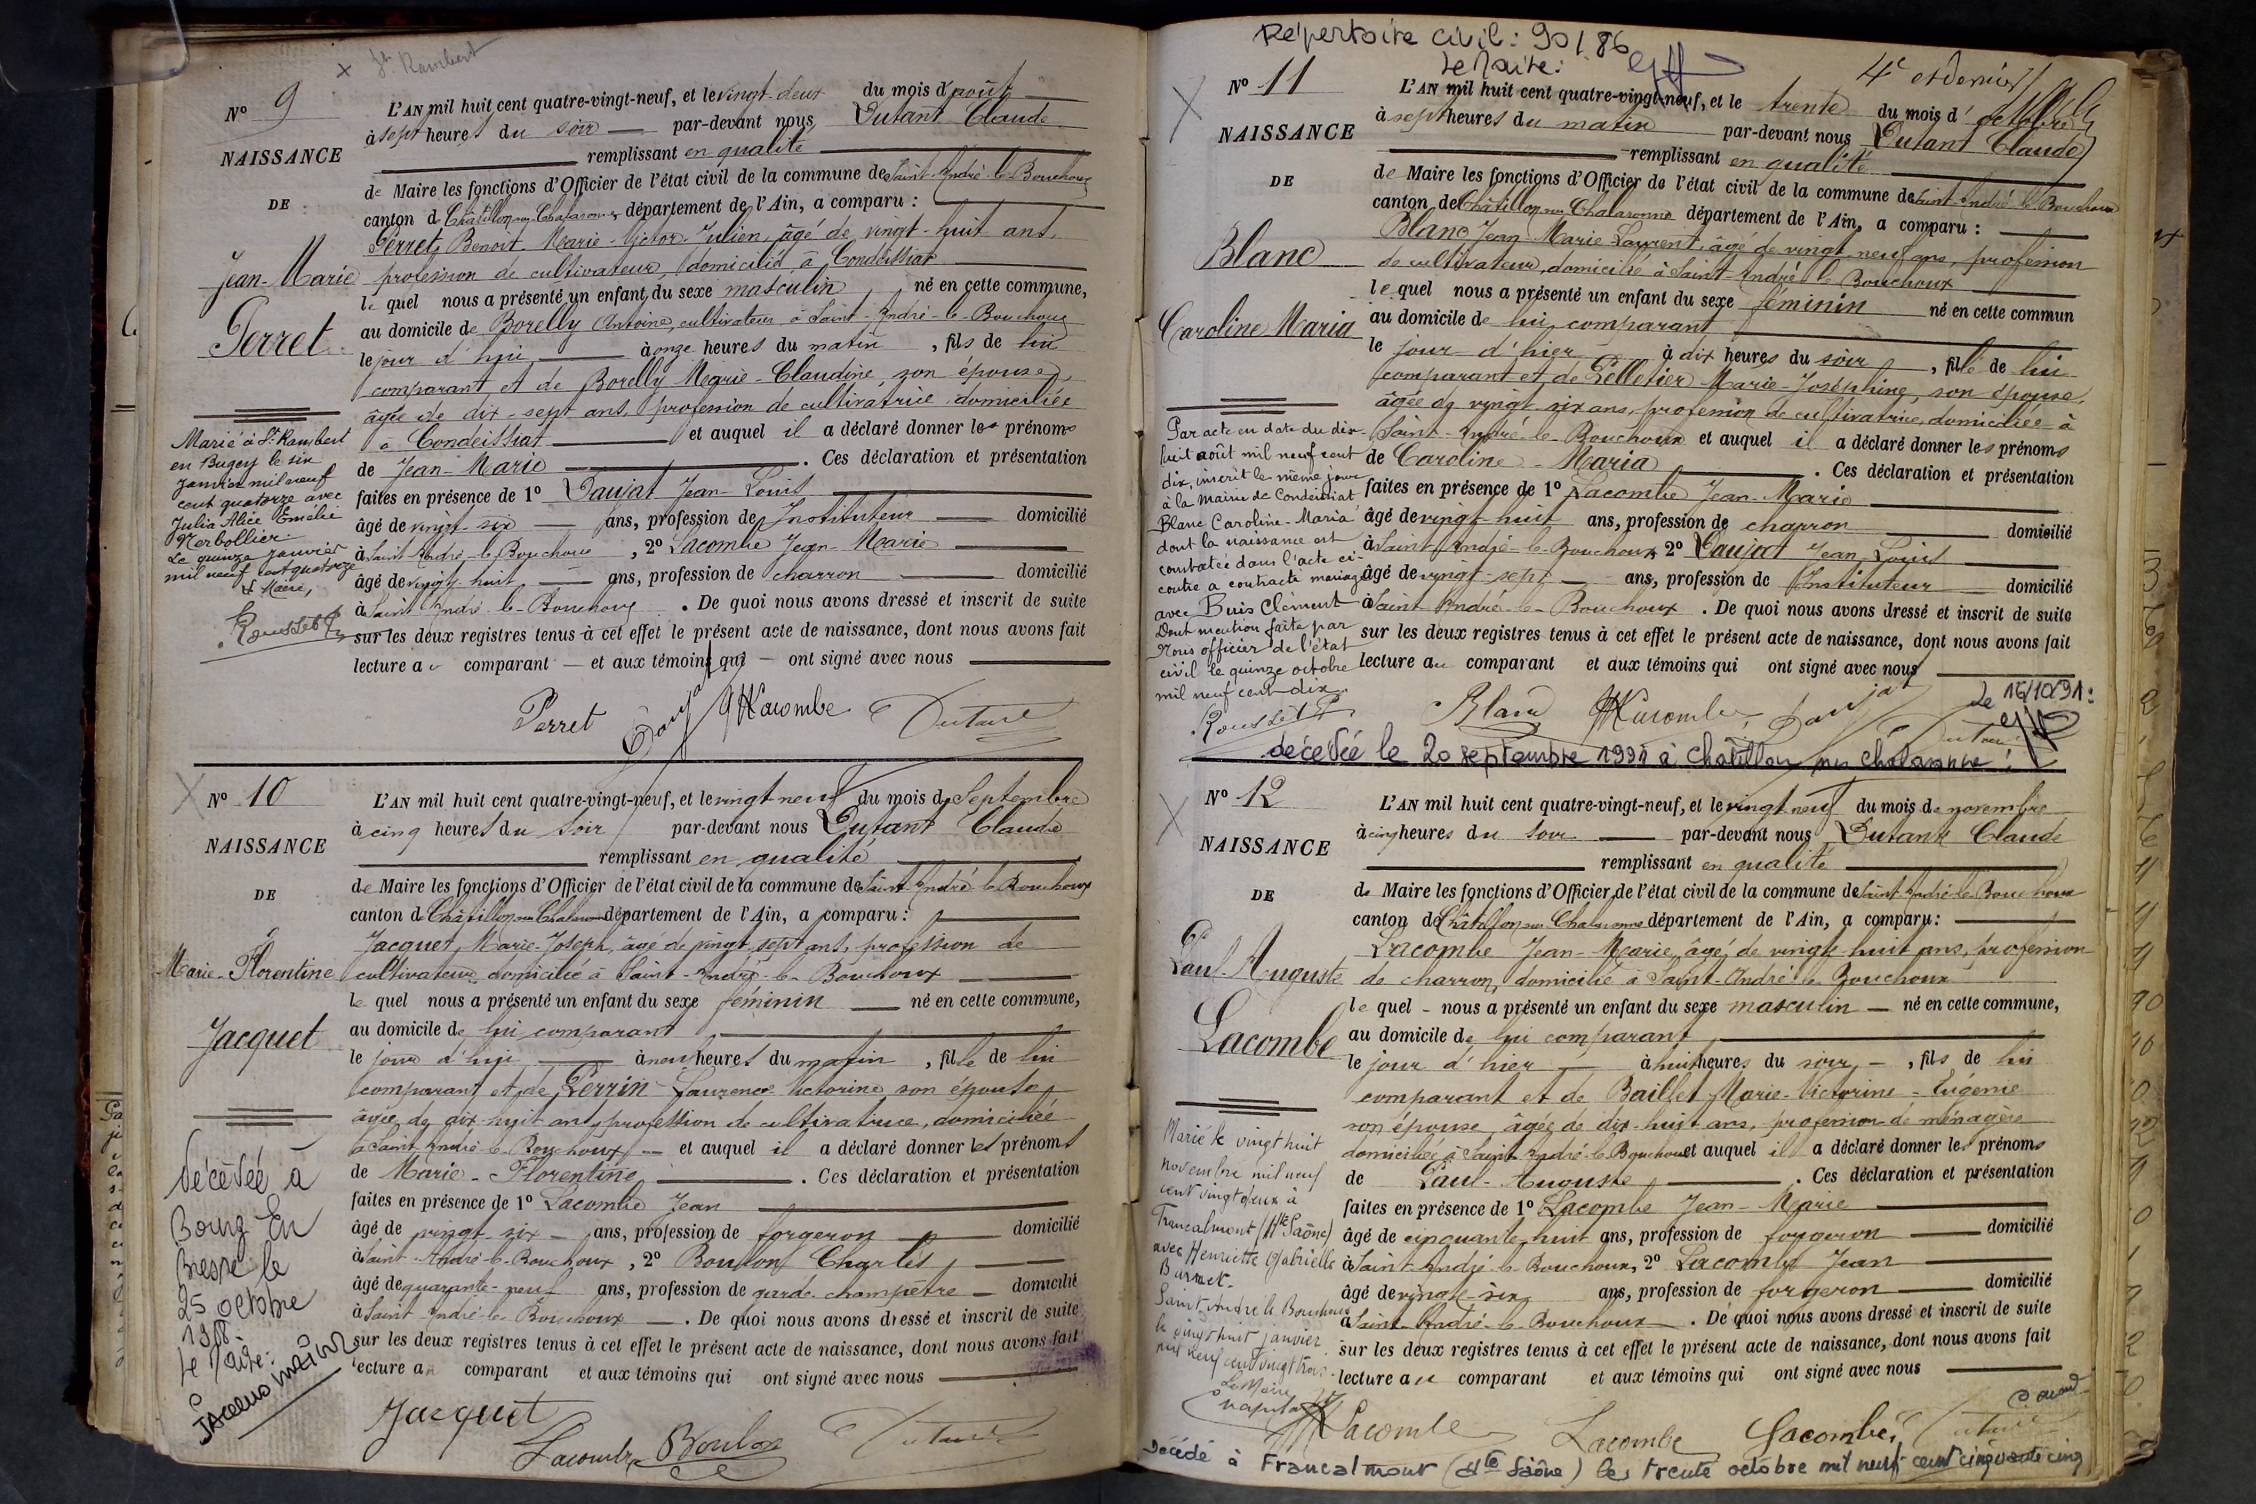 St Rambert
N° 9
NAISSANCE
DE
Jean-Marie
Perret
L'AN mil huit cent quatre-vingt-neuf, et le vingt-deux du mois d'août
à sept heures du soir par-devant nous, Dutant Claude
remplissant en qualité
de Maire les fonctions d'Officier de l'état civil de la commune de Saint-André-le-Bouchoux
canton de Châtillon-sur-Chalaronne département de l'Ain, a comparu :
Perret, Benoit-Marie-Victor-Julien, âgé de vingt-huit ans,
profession de cultivateur, domicilié à Condeissiat
le quel nous a présenté un enfant du sexe masculin, né en cette commune,
au domicile de Borelly Antoine, cultivateur à Saint-André-le-Bouchoux
le jour d'hui à onze heures du matin, fils de lui
comparant et de Borelly Marie-Claudine, son épouse,
âgée de dix-sept ans, profession de cultivatrice domiciliée
à Condeissiat et auquel il a déclaré donner les prénoms
de Jean-Marie. Ces déclaration et présentation
faites en présence de 1° Daujat Jean-Louis
âgé de vingt-six ans, profession de Instituteur domicilié
à Saint-André-le-Bouchoux, 2° Lacombe Jean-Marie
âgé de vingt-huit ans, profession de charron domicilié
à Saint-André-le-Bouchoux. De quoi nous avons dressé et inscrit de suite
sur les deux registres tenus à cet effet le présent acte de naissance, dont nous avons fait
lecture au comparant et aux témoins qui ont signé avec nous
Marié à St Rambert
en Bugey le six
janvier mil neuf
cent quatorze avec
Julia Alice Emélie
Nerbollier.
Le quinze janvier
mil neuf cent quatorze
Le Maire,
Rousset
Perret Daujat JMLacombe Dutant
N° 10
NAISSANCE
DE
Marie-Florentine
Jacquet
L'AN mil huit cent quatre-vingt-neuf, et le vingt neuf du mois de Septembre
à cinq heures du soir par-devant nous Dutant Claude
remplissant en qualité
de Maire les fonctions d'Officier de l'état civil de la commune de Saint-André-le-Bouchoux
canton de Châtillon-sur-Chalaronne département de l'Ain, a comparu :
Jacquet, Marie-Joseph, âgé de vingt-sept ans, profession de
cultivateur, domicilié à Saint-André-le-Bouchoux
le quel nous a présenté un enfant du sexe féminin né en cette commune,
au domicile de lui comparant
le jour d'hui à neuf heures du matin, fille de lui
comparant et de Perrin Laurence Victorine son épouse,
âgée de dix-huit ans, profession de cultivatrice, domiciliée
à Saint-André-le-Bouchoux et auquel il a déclaré donner les prénoms
de Marie-Florentine. Ces déclaration et présentation
faites en présence de 1° Lacombe Jean
âgé de vingt six ans, profession de forgeron domicilié
à Saint-André-le-Bouchoux, 2° Boulon Charles
âgé de quarante-neuf ans, profession de garde-champêtre domicilié
à Saint-André-le-Bouchoux. De quoi nous avons dressé et inscrit de suite
sur les deux registres tenus à cet effet le présent acte de naissance, dont nous avons fait
lecture au comparant et aux témoins qui ont signé avec nous
décédée à
Bourg-En
Bresse le
25 octobre
Le Maire:
Jacquet
Lacombe Boulon Dutant
Répertoire civil: 90/86
Le Maire:
4e et dernier
N° 11
NAISSANCE
DE
Blanc
Caroline Maria
L'AN mil huit cent quatre-vingt-neuf, et le trente du mois d'octobre
à sept heures du matin par-devant nous Dutant Claude
remplissant en qualité
de Maire les fonctions d'Officier de l'état civil de la commune de Saint-André-le-Bouchoux
canton de Châtillon-sur-Chalaronne département de l'Ain, a comparu :
Blanc Jean-Marie-Laurent, âgé de vingt neuf ans, profession
de cultivateur, domicilié à Saint-André-le-Bouchoux
le quel nous a présenté un enfant du sexe féminin né en cette commun
au domicile de lui comparant
le jour d'hier à dix heures du soir, fille de lui
comparant et de Pelletier Marie-Joséphine, son épouse,
âgée de vingt-six ans, profession de cultivatrice, domiciliée à
Saint-André-le-Bouchoux et auquel il a déclaré donner les prénoms
de Caroline-Maria. Ces déclaration et présentation
faites en présence de 1° Lacombe Jean-Marie
âgé de vingt-huit ans, profession de charron domicilié
à Saint-André-le-Bouchoux 2° Daujat Jean-Louis
âgé de vingt-sept ans, profession de Instituteur domicilié
à Saint-André-le-Bouchoux. De quoi nous avons dressé et inscrit de suite
sur les deux registres tenus à cet effet le présent acte de naissance, dont nous avons fait
lecture au comparant et aux témoins qui ont signé avec nous
Par acte en date du dix-
huit août mil neuf cent
dix, inscrit le même jour
à la Mairie de Condeissiat
Blanc Caroline-Maria
dont la naissance est
constatée dans l'acte ci-
contre a contracté mariage
avec Buis Clément
Dont mention faite par
Nous officier de l'état
civil le quinze octobre
mil neuf cent dix.
Rousset
Blanc JMLacombe Daujat Dutant
Le 16/10/91:
décédée le 20 septembre 1991 à Châtillon sur Chalaronne
N° 12
NAISSANCE
DE
Paul-Auguste
Lacombe
L'AN mil huit cent quatre-vingt-neuf, et le vingt neuf du mois de novembre
à cinq heures du soir par-devant nous Dutant Claude
remplissant en qualité
de Maire les fonctions d'Officier de l'état civil de la commune de Saint-André-le-Bouchoux
canton de Châtillon-sur-Chalaronne département de l'Ain, a comparu :
Lacombe Jean-Marie, âgé de vingt-huit ans, profession
de charron, domicilié à Saint-André-le-Bouchoux
le quel nous a présenté un enfant du sexe masculin né en cette commune,
au domicile de lui comparant
le jour d'hier à huit heures du soir, fils de lui
comparant et de Baillet Marie-Victorine-Eugénie
son épouse, âgée de dix-huit ans, profession de ménagère
domiciliée à Saint-André-le-Bouchoux et auquel il a déclaré donner les prénoms
de Paul-Auguste. Ces déclaration et présentation
faites en présence de 1° Lacombe Jean-Marie
âgé de cinquante-huit ans, profession de forgeron domicilié
à Saint-André-le-Bouchoux, 2° Lacombe Jean
âgé de vingt-six ans, profession de forgeron domicilié
à Saint-André-le-Bouchoux. De quoi nous avons dressé et inscrit de suite
sur les deux registres tenus à cet effet le présent acte de naissance, dont nous avons fait
lecture au comparant et aux témoins qui ont signé avec nous
Marié le vingt huit
novembre mil neuf
cent vingt deux à
Francalmont (Hte Saône)
avec Henriette Gabrielle
Saint-André le Bouchoux
le vingt huit janvier
mil neuf cent vingt trois.
Le Maire
JMLacombe Lacombe Lacombe Dutant
Décédé à Francalmont (Hte Saône) le trente octobre mil neuf cent cinquante cinq